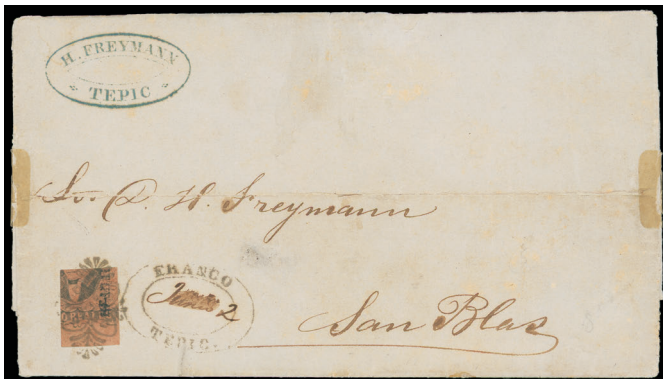 H. FREYMANN
TEPIC
Sr. D. H. Freymann
FRANCO
Junio 2
TEPIC.
San Blas